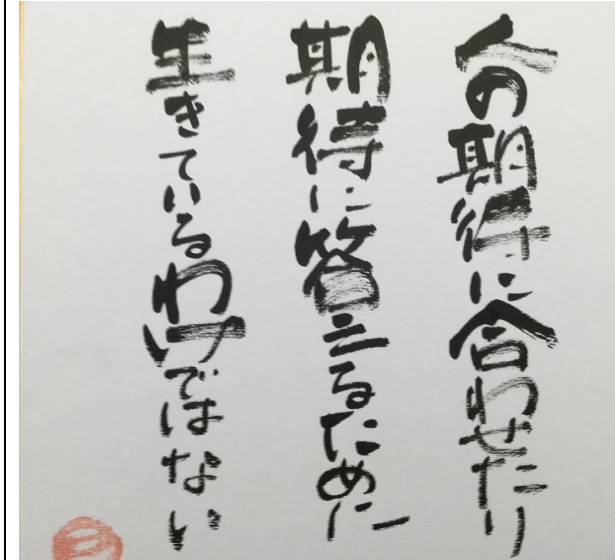 人の期待に合わせたり
期待に答えるために
生きているわけではない